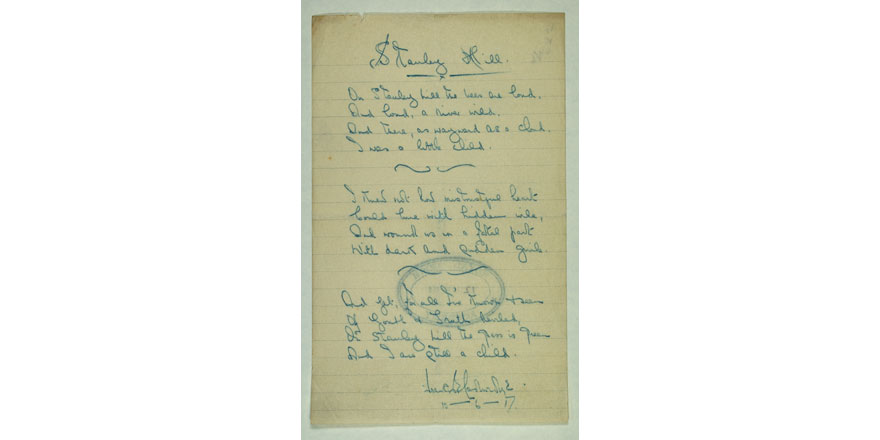 Stanley Hill.
On Stanley hill the bees are loud,
And loud, a river wild.
And there, as wayward as a cloud,
I was a little child.
I knew not how mistrustful heart
Could lure with hidden wile,
And wound us in a fatal part
With dark and sudden guile.
And yet, for all I've known & seen
Of Youth & Truth reviled,
On Stanley hill the grass is green
And I am still a child.
Ledwidge
10 — 6 — 17